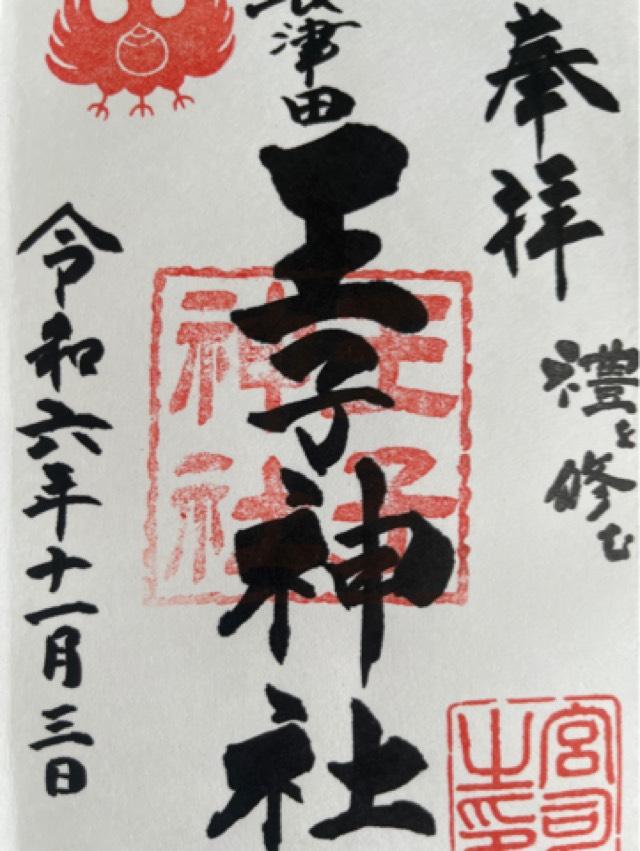 奉拝
禮を修む
長津田
王子神社
王子
神社
宮司
之印
令和六年十一月三日